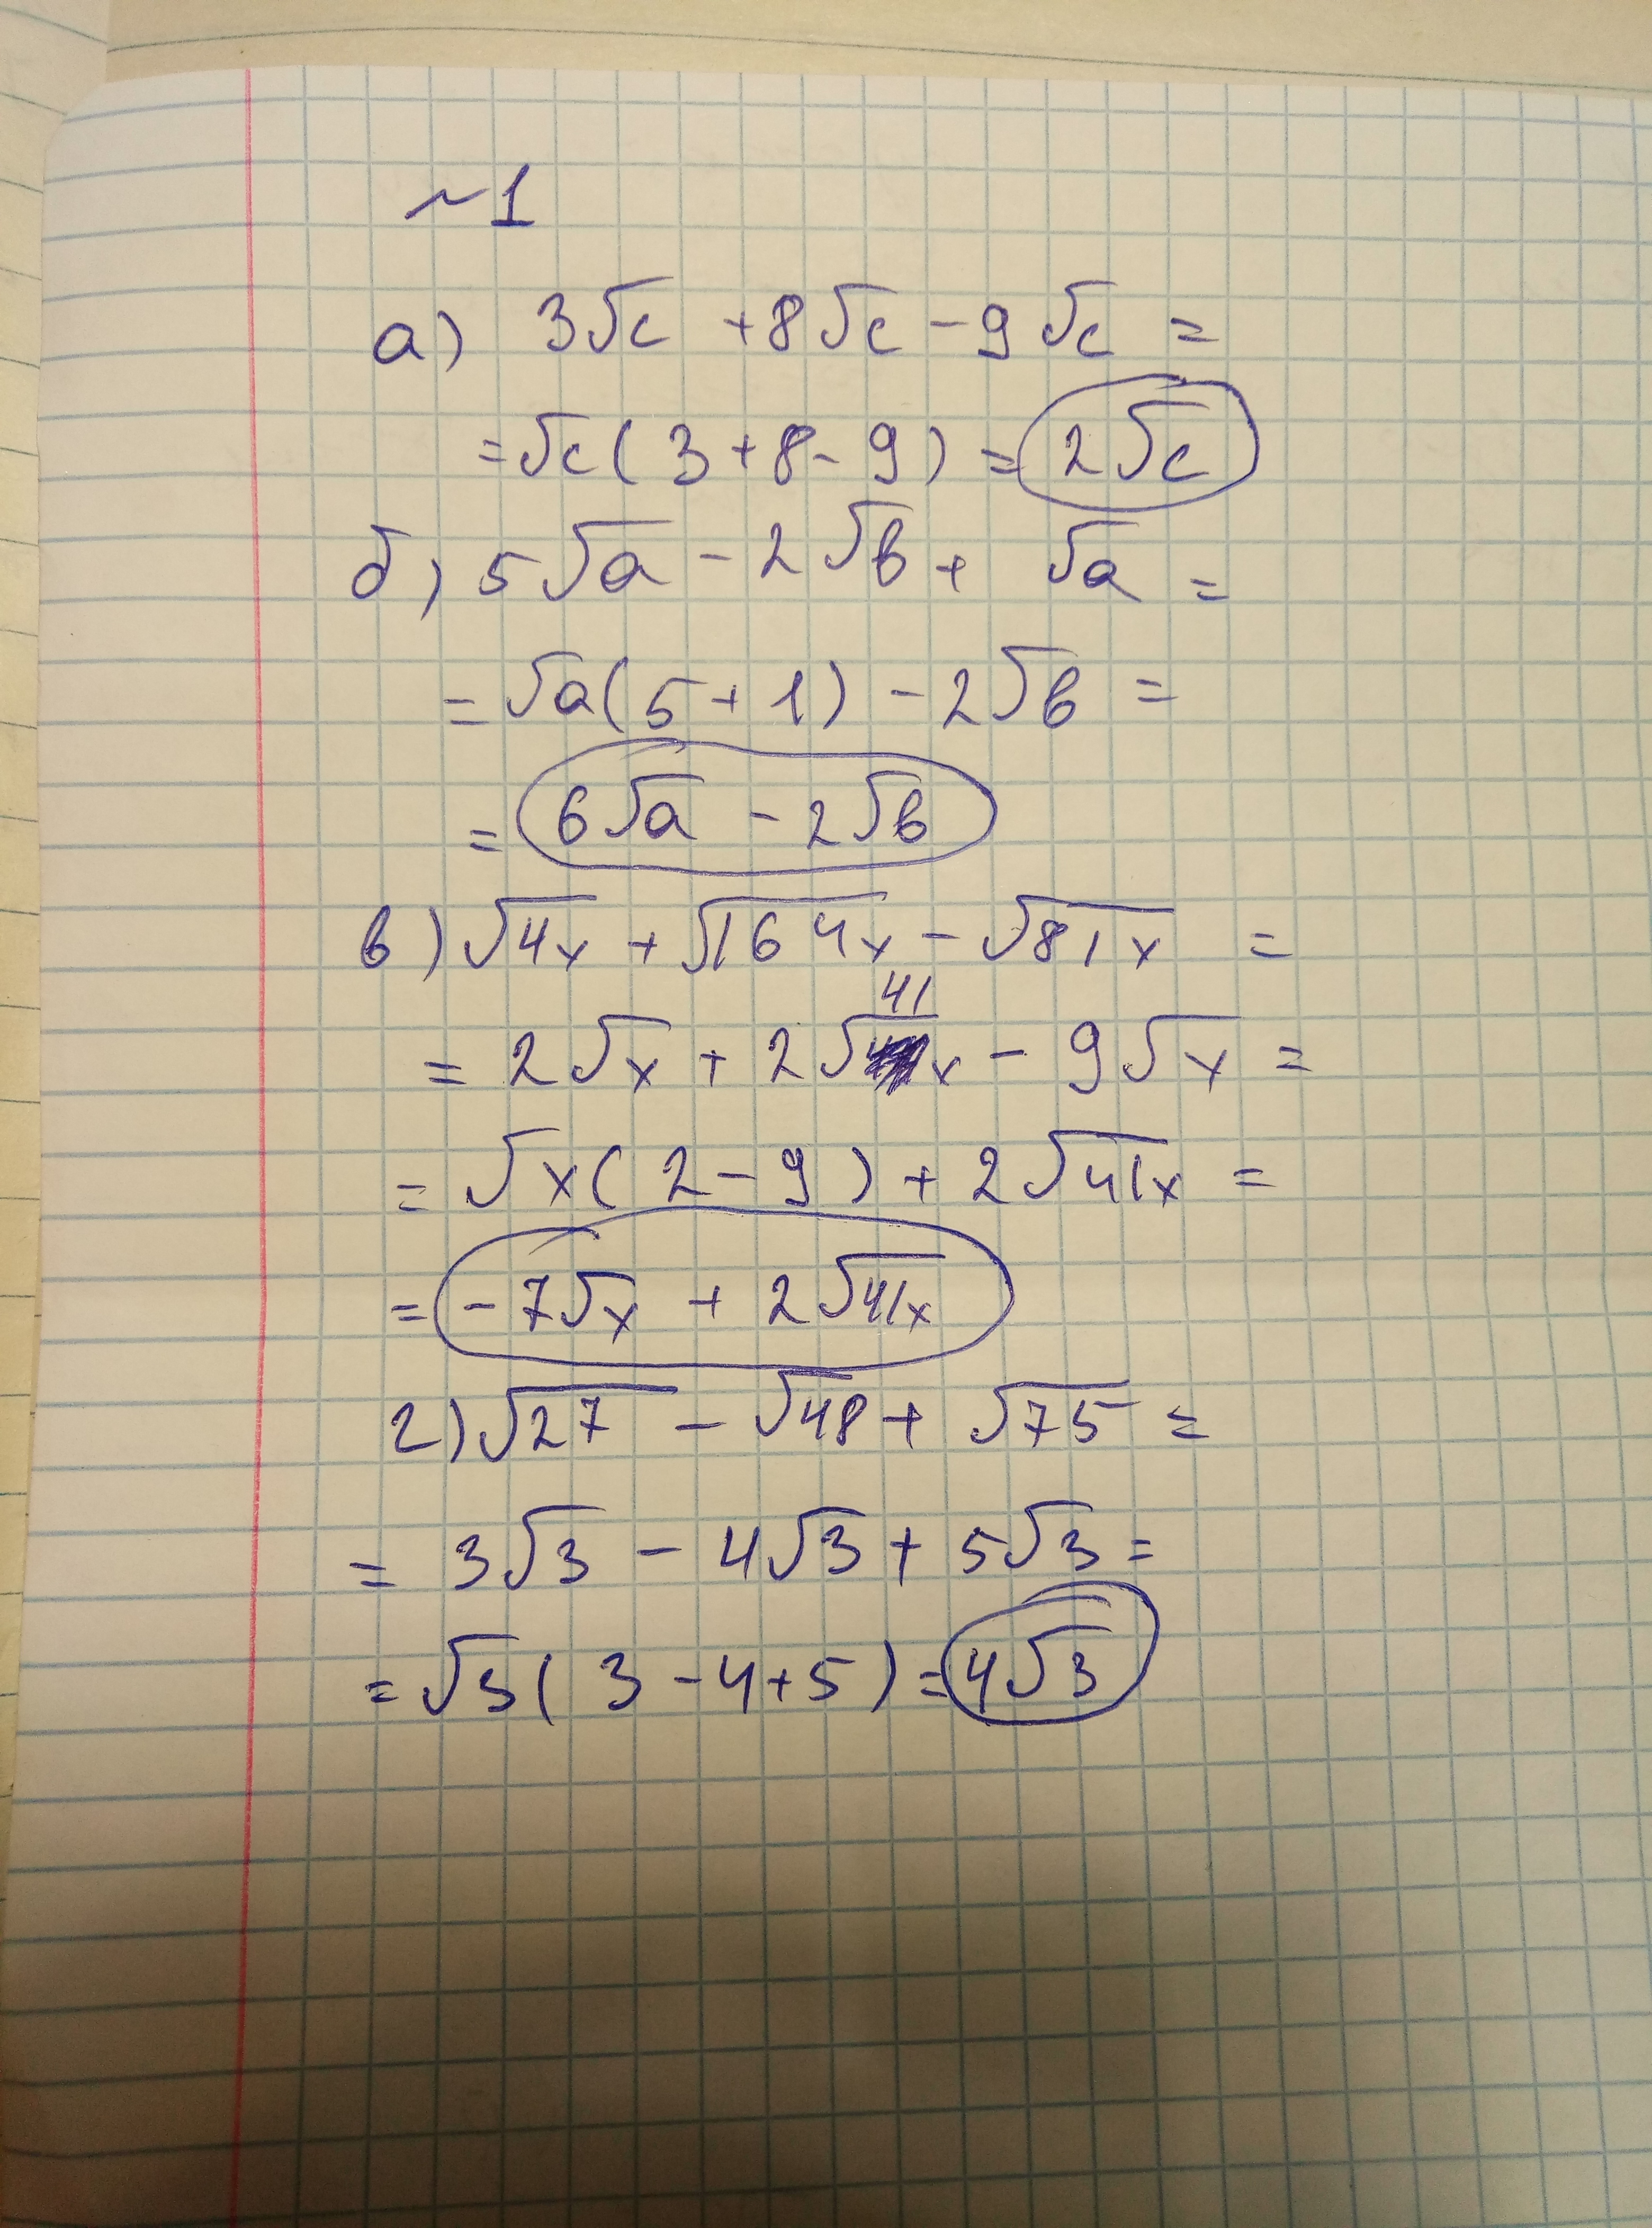 ~1
а) 3√c + 8√c - 9√c =
= √c(3 + 8 - 9) = 2√c
б) 5√a - 2√b + √a =
= √a(5 + 1) - 2√b =
= 6√a - 2√b
в) √4x + √164x - √81x =
= 2√x + 2√41x - 9√x =
= √x(2 - 9) + 2√41x =
= -7√x + 2√41x
г) √27 - √48 + √75 =
= 3√3 - 4√3 + 5√3 =
= √3(3 - 4 + 5) = 4√3